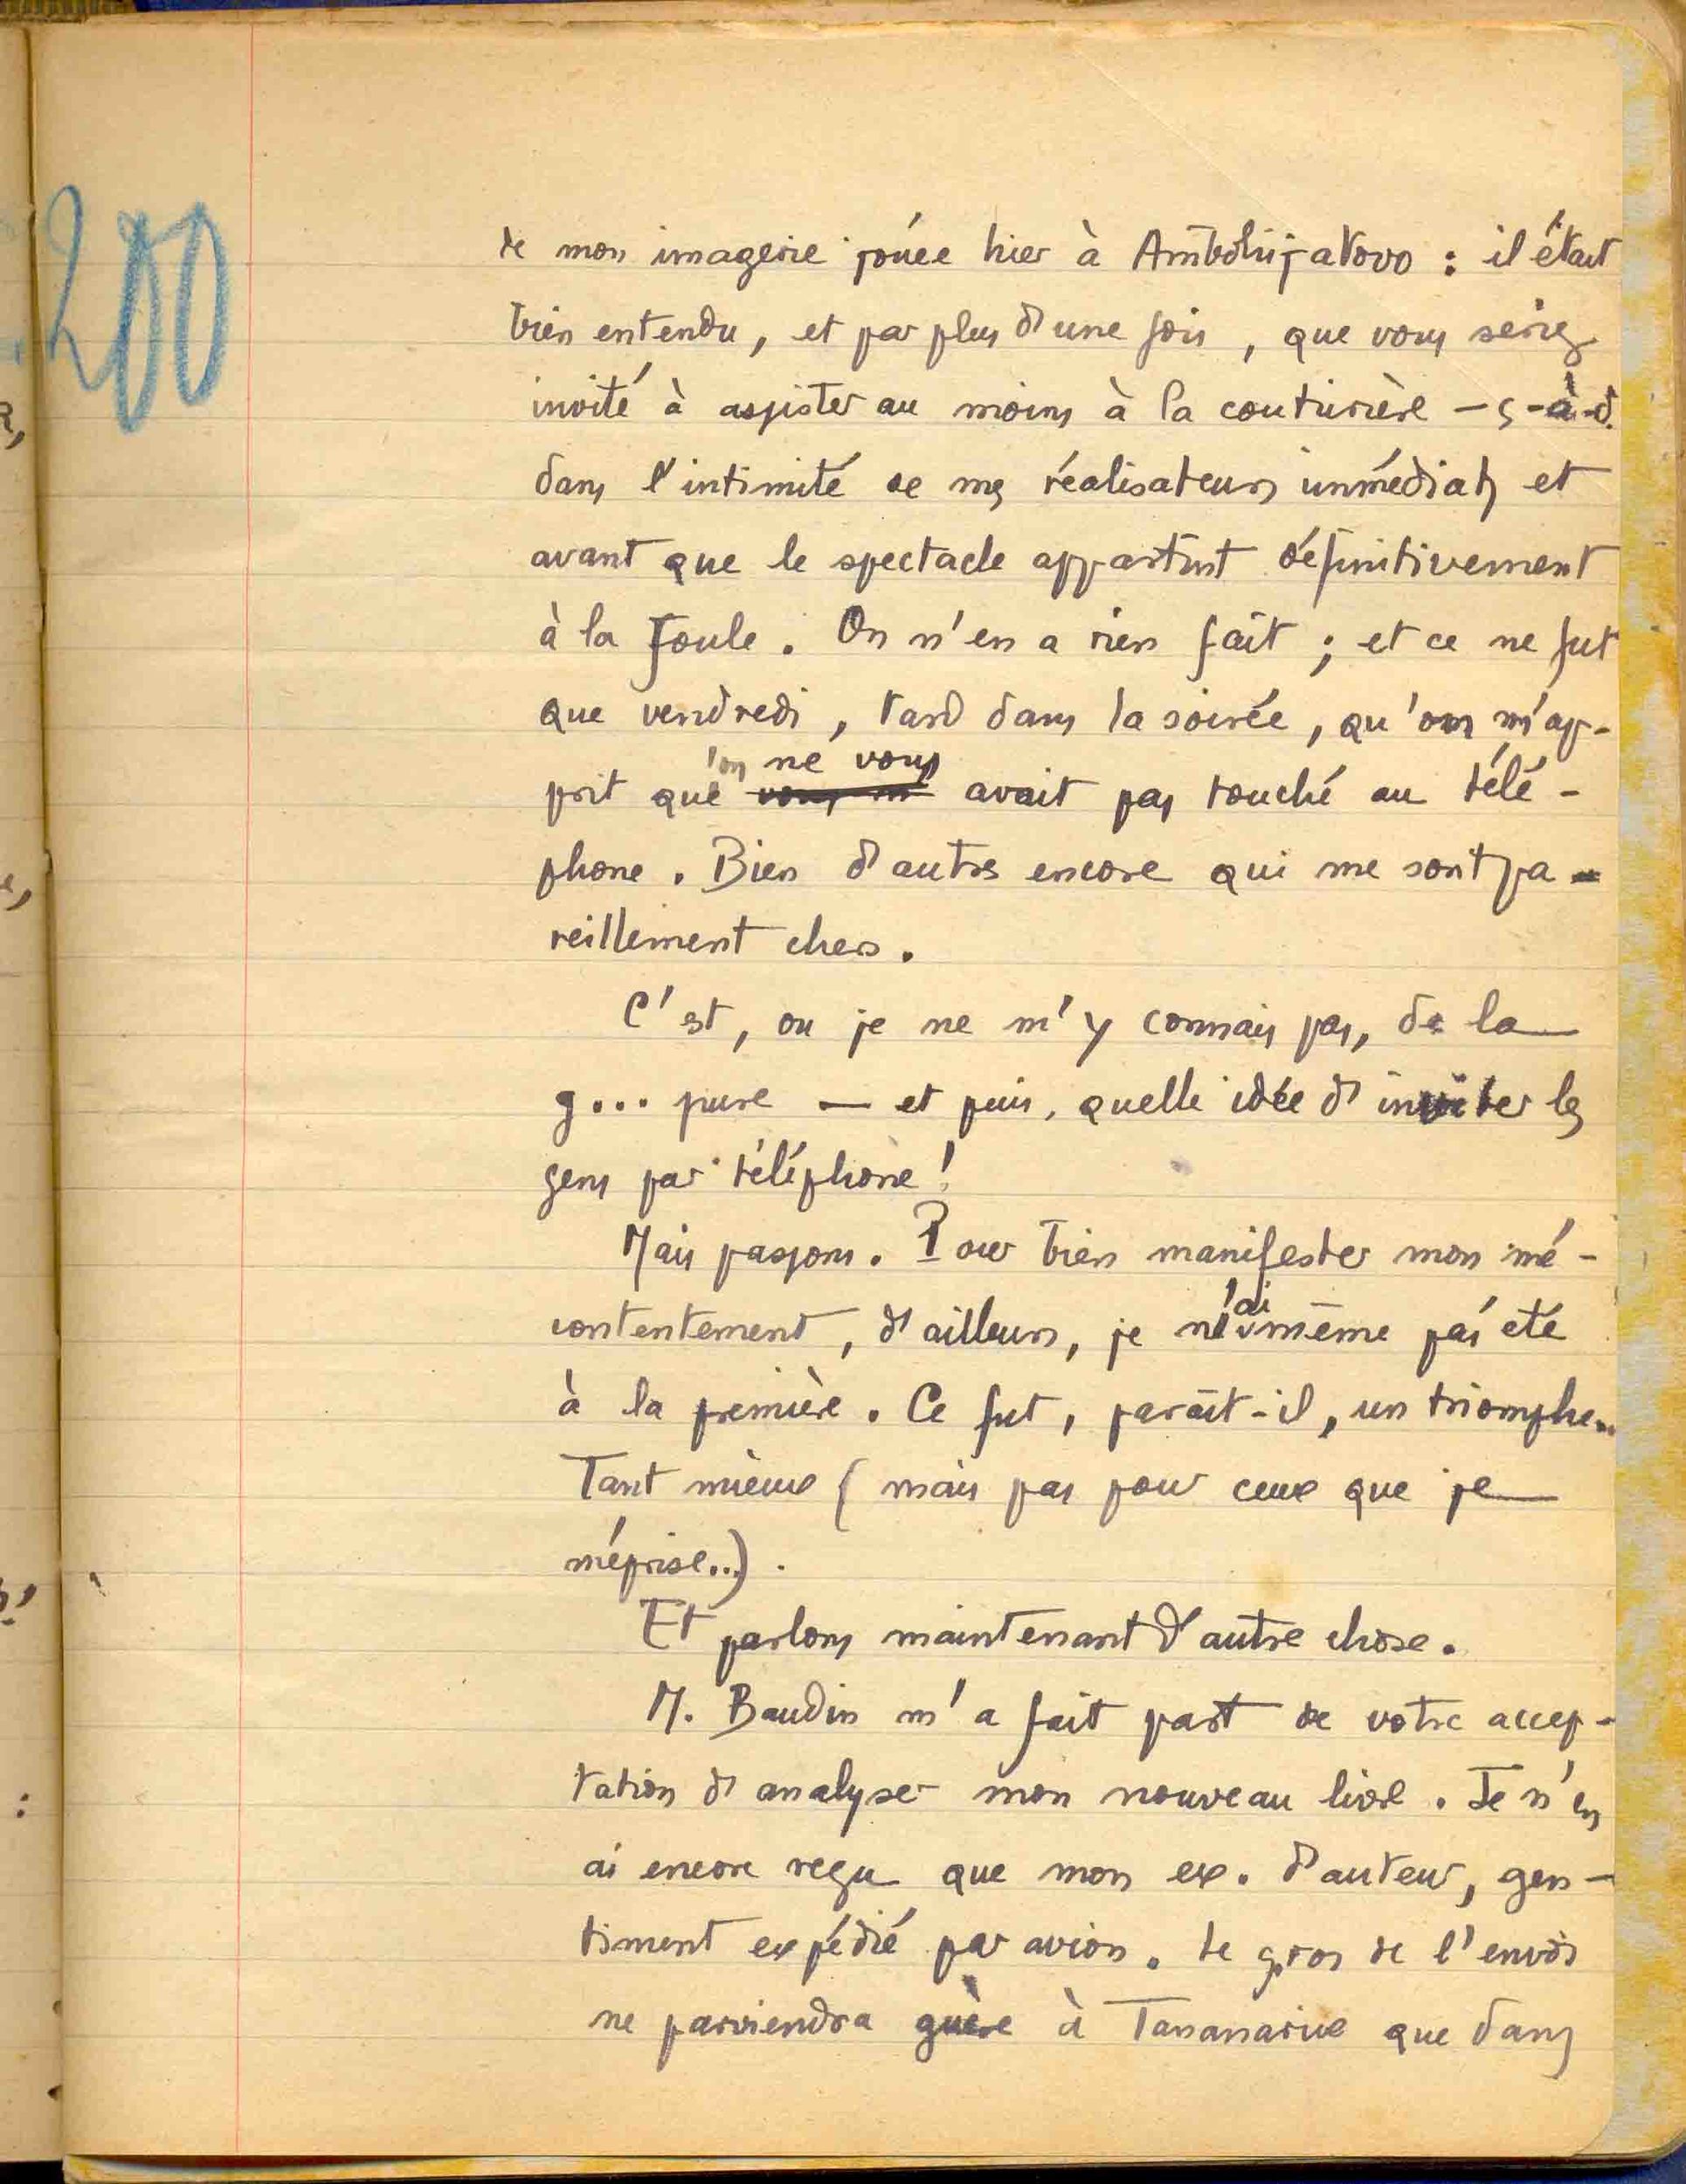 200
de mon imagerie jouée hier à Ambohijatovo : il était
bien entendu, et par plus d'une fois, que vous seriez
invité à assister au moins à la couturière — c-à-d.
dans l'intimité de mes réalisateurs immédiats et
avant que le spectacle appartînt définitivement
à la foule. On n'en a rien fait ; et ce ne fut
que vendredi, tard dans la soirée, qu'on m'ap-
prit que l'on ne vous avait pas touché au télé-
phone. Bien d'autres encore qui me sont pa-
reillement chers.
C'est, ou je ne m'y connais pas, de la
g... pure — et puis, quelle idée d'inviter les
gens par téléphone !
Mais passons. Pour bien manifester mon mé-
contentement, d'ailleurs, je n'ai même pas été
à la première. Ce fut, paraît-il, un triomphe...
Tant mieux (mais pas pour ceux que je
méprise...).
Et parlons maintenant d'autre chose.
M. Baudin m'a fait part de votre accep-
tation d'analyser mon nouveau livre. Je n'en
ai encore reçu que mon ex. d'auteur, gen-
timent expédié par avion. Le gros de l'envoi
ne parviendra guère à Tananarive que dans